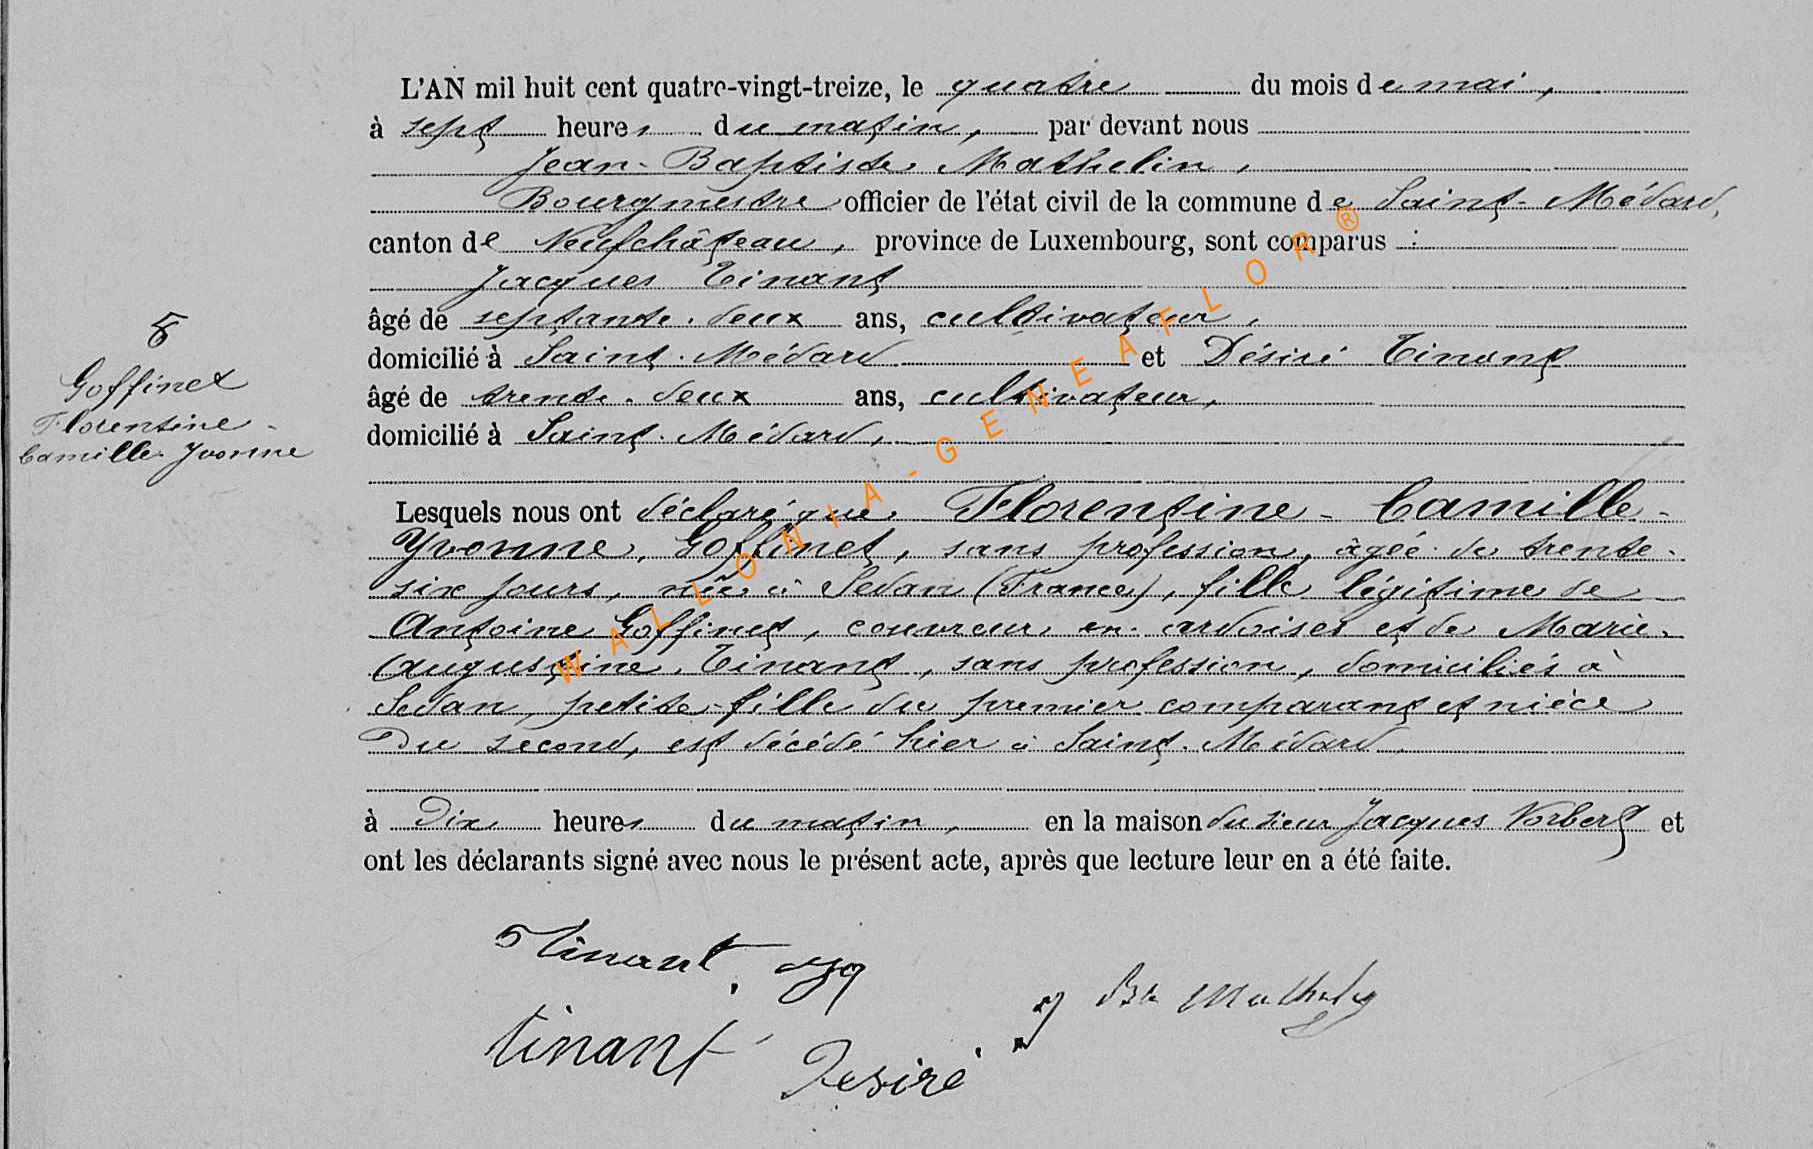 L'AN mil huit cent quatre-vingt-treize, le quatre du mois de mai,
à sept heures du matin, par devant nous
Jean-Baptiste Mathelin,
Bourgmestre officier de l'état civil de la commune de Saint-Médard,
canton de Neufchâteau, province de Luxembourg, sont comparus :
Jacques Tinant
âgé de septante-deux ans, cultivateur,
domicilié à Saint-Médard et Désiré Tinant
âgé de trente-deux ans, cultivateur,
domicilié à Saint-Médard,
8
Goffinet
Florentine-
Camille-Yvonne
Lesquels nous ont déclaré que Florentine-Camille-
Yvonne, Goffinet, sans profession, âgée de trente-
six jours, née à Sedan (France), fille légitime de
Antoine Goffinet, couvreur en ardoises et de Marie-
Augustine Tinant, sans profession, domiciliés à
Sedan, petite-fille du premier comparant et nièce
Du second, est décédé hier à Saint-Médard,
à Dix heures du matin, en la maison du sieur Jacques Norbert et
ont les déclarants signé avec nous le présent acte, après que lecture leur en a été faite.
Tinant
J Bte Mathelin
tinant Desiré
WALLONIA-GENEAFLOR®